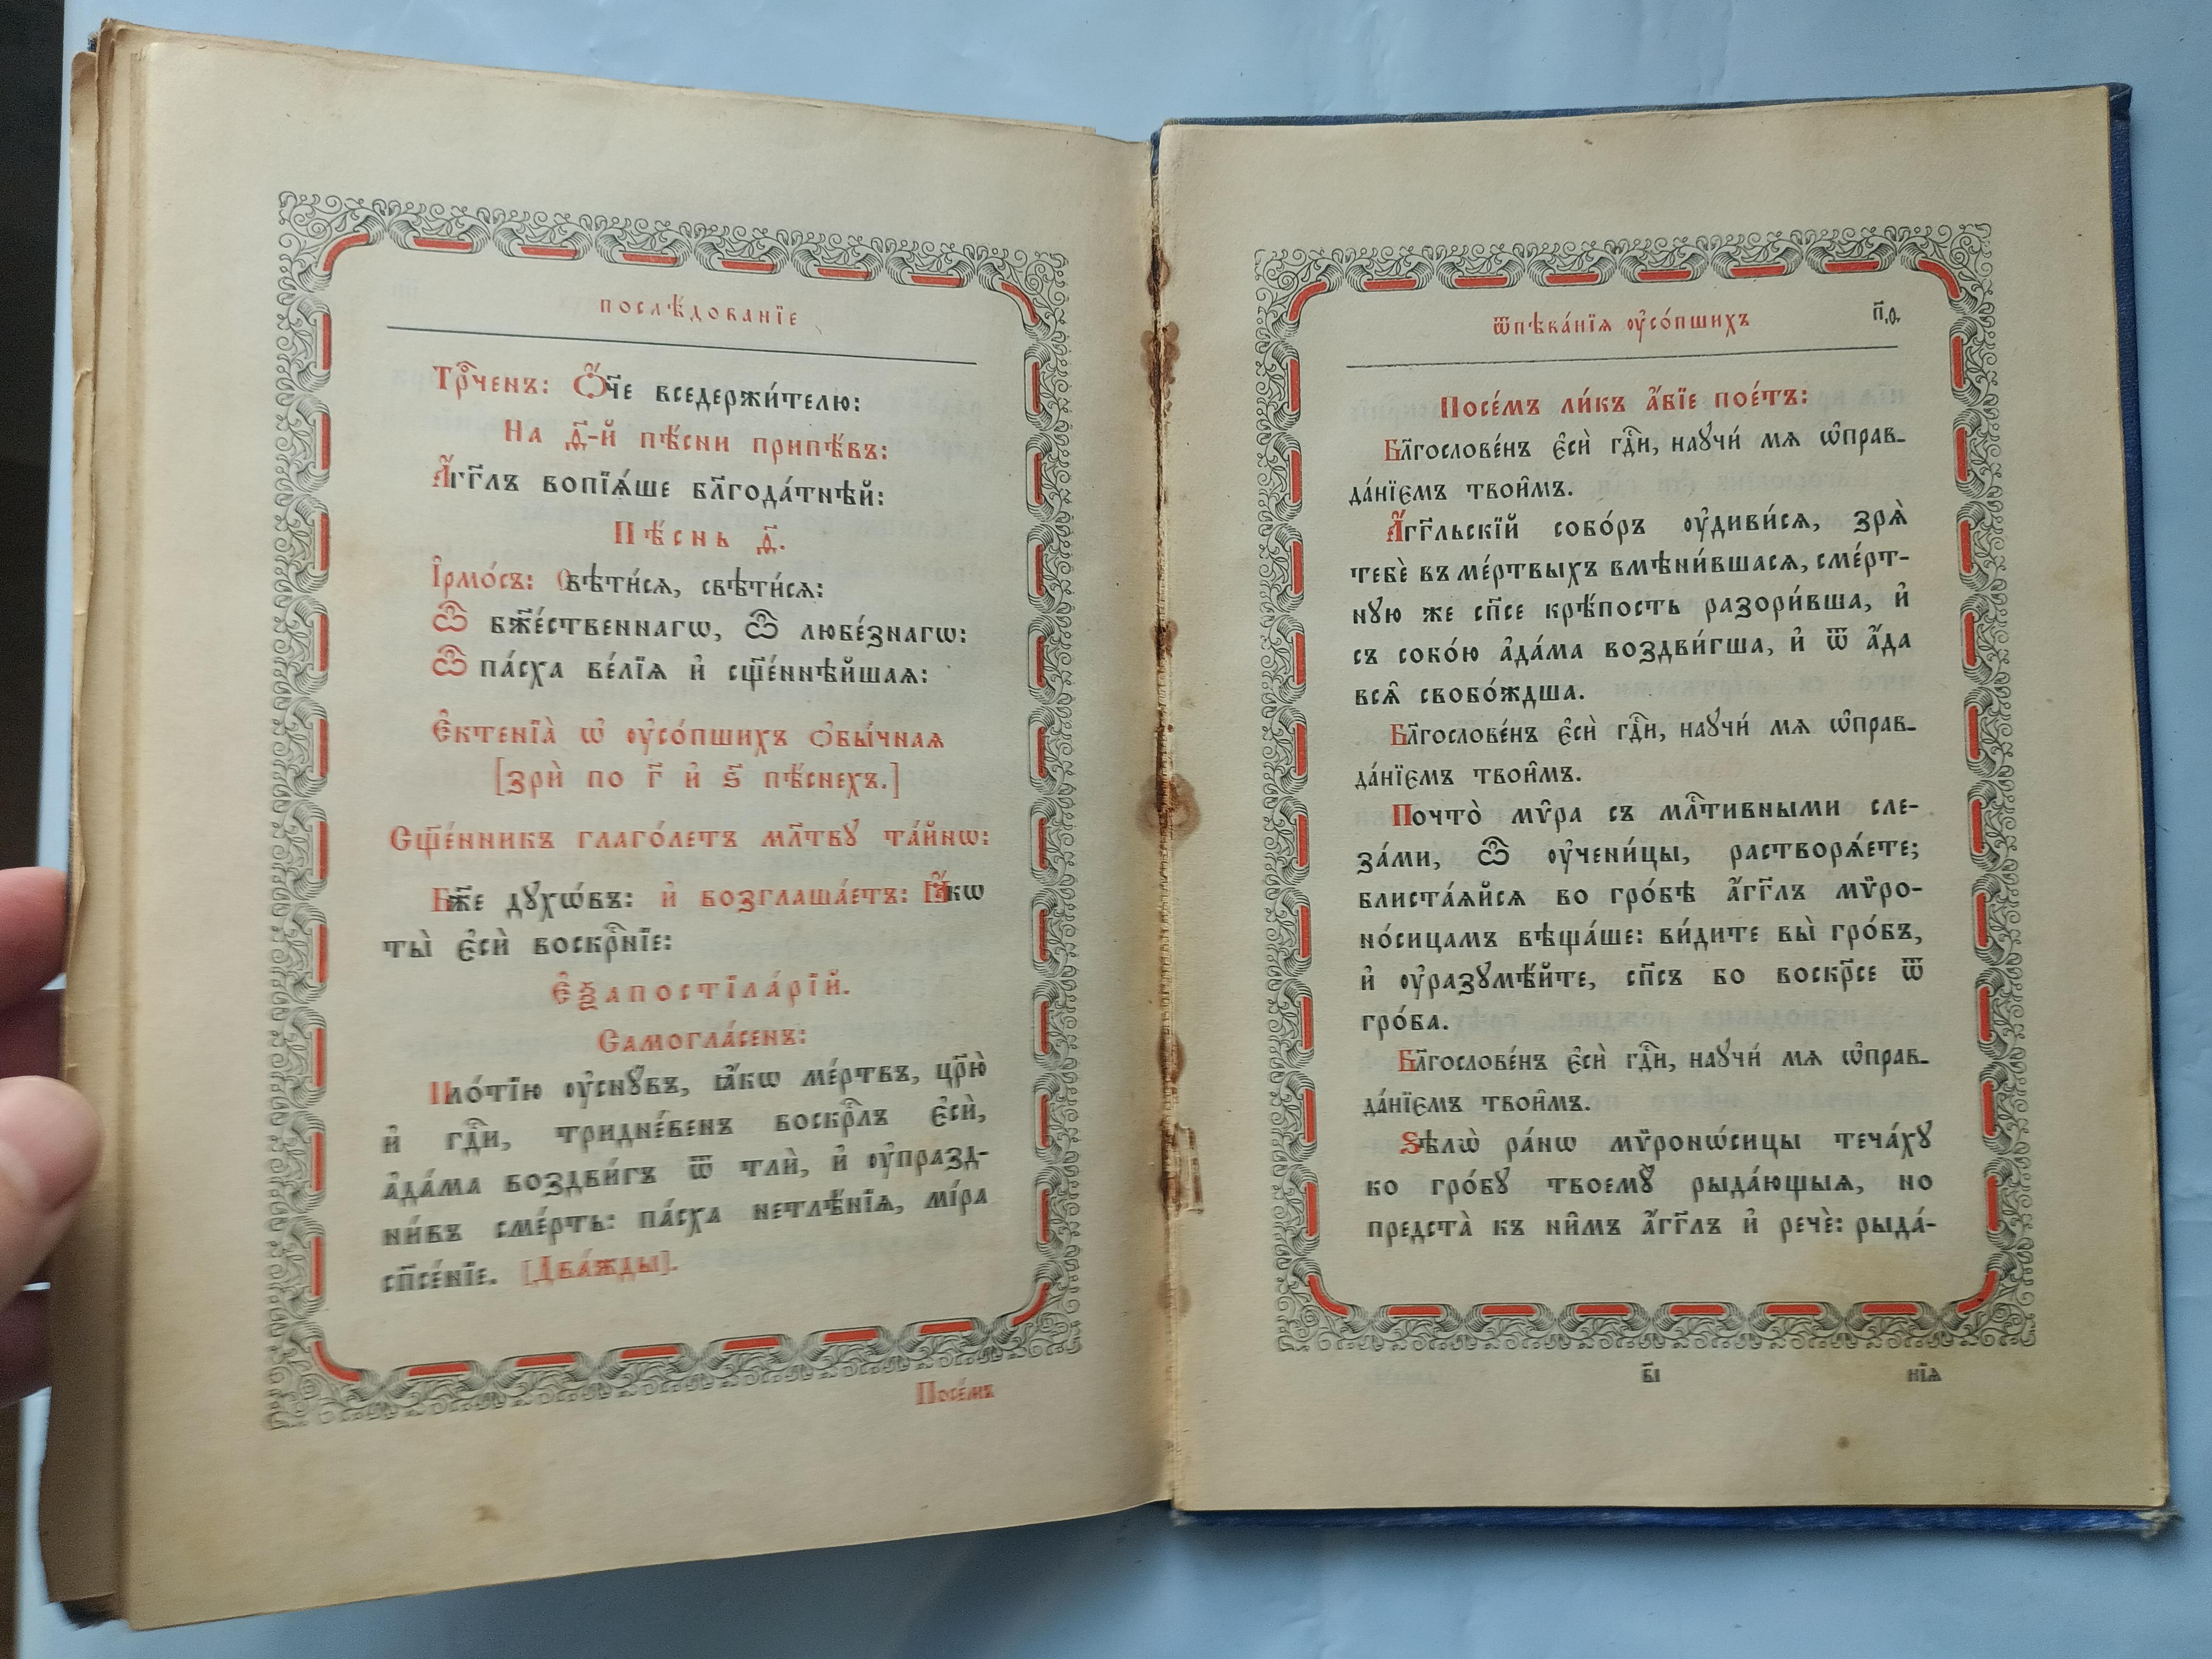 послѣ́дованїе
Трⷪ҇ченъ: Ѻ҆́ч҃е вседержи́телю:
На д҃-й пѣ́сни припѣ́въ:
А҆́гг҃лъ вопїѧ́ше бл҃года́тнѣй:
Пѣ́снь д҃.
І҆рмо́съ: Свѣти́сѧ, свѣти́сѧ:
Ѽ бж҃е́ственнагѡ, ѽ любе́знагѡ:
Ѽ па́сха ве́лїѧ и҆ сщ҃е́ннѣйшаѧ:
Є҆ктенїѧ̀ ѡ҆ ᲂу҆со́пшихъ ѻ҆бы́чнаѧ
[зрѝ по г҃ и҆ ѕ҃ пѣ́снехъ.]
Сщ҃е́нникъ глаго́летъ мл҃твꙋ та́йнѡ:
Бж҃е дꙋхѡ́въ: и҆ возглаша́етъ: Ꙗ҆́кѡ
ты̀ є҆сѝ воскрⷭ҇нїе:
Є҆ѯапостїла́рїй.
Самогла́сенъ:
Пло́тїю ᲂу҆снꙋ́въ, ꙗ҆́кѡ ме́ртвъ, цр҃ю̀
и҆ гдⷭ҇и, тридне́венъ воскрⷭ҇лъ є҆сѝ,
а҆да́ма воздви́гъ ѿ тлѝ, и҆ ᲂу҆празд-
ни́въ сме́рть: па́сха нетлѣ́нїѧ, мі́ра
сп҃се́нїе. [Два́жды].
Посе́мъ
ѿпѣва́нїѧ ᲂу҆со́пшихъ п҃.ѳ.
Посе́мъ ли́къ а҆́бїе пое́тъ:
Бл҃гослове́нъ є҆сѝ гдⷭ҇и, наꙋчи́ мѧ ѡ҆прав-
да́нїємъ твои̑мъ.
А҆́гг҃льскїй собо́ръ ᲂу҆диви́сѧ, зрѧ̀
тебѐ въ ме́ртвыхъ вмѣни́вшасѧ, сме́рт-
нꙋю же сп҃се крѣ́пость разори́вша, и҆
съ собо́ю а҆да́ма воздви́гша, и҆ ѿ а҆́да
всѧ̑ свобо́ждша.
Бл҃гослове́нъ є҆сѝ гдⷭ҇и, наꙋчи́ мѧ ѡ҆прав-
да́нїємъ твои̑мъ.
Почто̀ мѵ̑ра съ млⷭ҇тивными сле-
за́ми, ѽ ᲂу҆чени́цы, растворѧ́ете;
блиста́ѧйсѧ во гро́бѣ а҆́гг҃лъ мѵ̈ро-
но́сицамъ вѣща́ше: ви́дите вы̀ гро́бъ,
и҆ ᲂу҆разꙋмѣ́йте, сп҃съ бо воскр҃се ѿ
гро́ба.
Бл҃гослове́нъ є҆сѝ гдⷭ҇и, наꙋчи́ мѧ ѡ҆прав-
да́нїємъ твои̑мъ.
Ѕѣлѡ̀ ра́нѡ мѵ̈ронѡ́сицы теча́хꙋ
ко гро́бꙋ твоемꙋ̀ рыда́ющыѧ, но
предста̀ къ ни̑мъ а҆́гг҃лъ и҆ речѐ: рыда́-
в҃і нїѧ